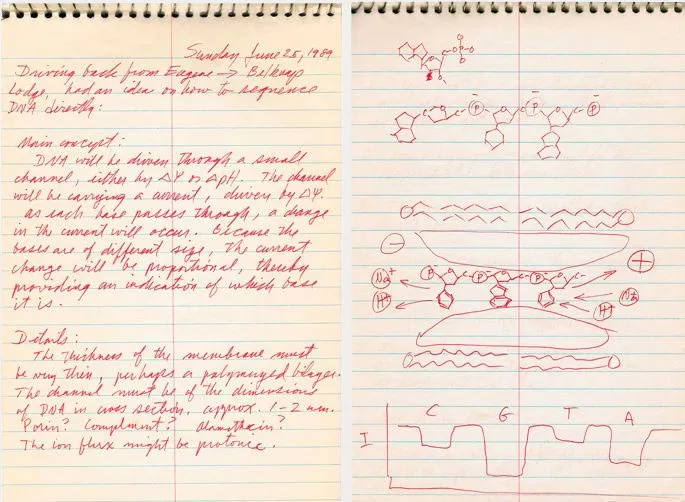 Sunday June 25, 1989
Driving back from Eugene → Belknap
Lodge, had an idea on how to sequence
DNA directly:
Main concept:
DNA will be driven through a small
channel, either by ΔΨ or ΔpH. The channel
will be carrying a current, driven by ΔΨ.
As each base passes through, a change
in the current will occur. Because the
bases are of different size, the current
change will be proportional, thereby
providing an indication of which base
it is.
Details:
The thickness of the membrane must
be very thin, perhaps a polymerized bilayer.
The channel must be of the dimensions
of DNA in cross section, approx. 1-2 nm.
Porin? Complement? Alamethicin?
The ion flux might be protonic.
P
P P P
− +
Na⁺ P P P
H⁺ Na
H⁺
C G T A
I